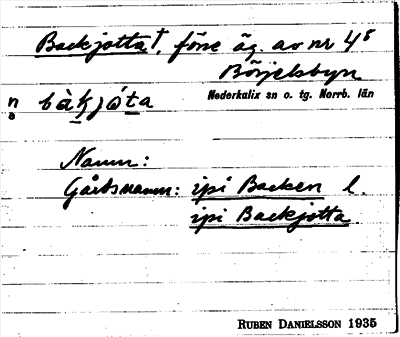 Backjotta†, före äg. av nr 4⁸
Börjelsbyn
Nederkalix sn o. tg. Norrb. län
bàkjóta
Namn:
Gårdsnamn: ipi Backen l.
ipi Backjotta
RUBEN DANIELSSON 1935